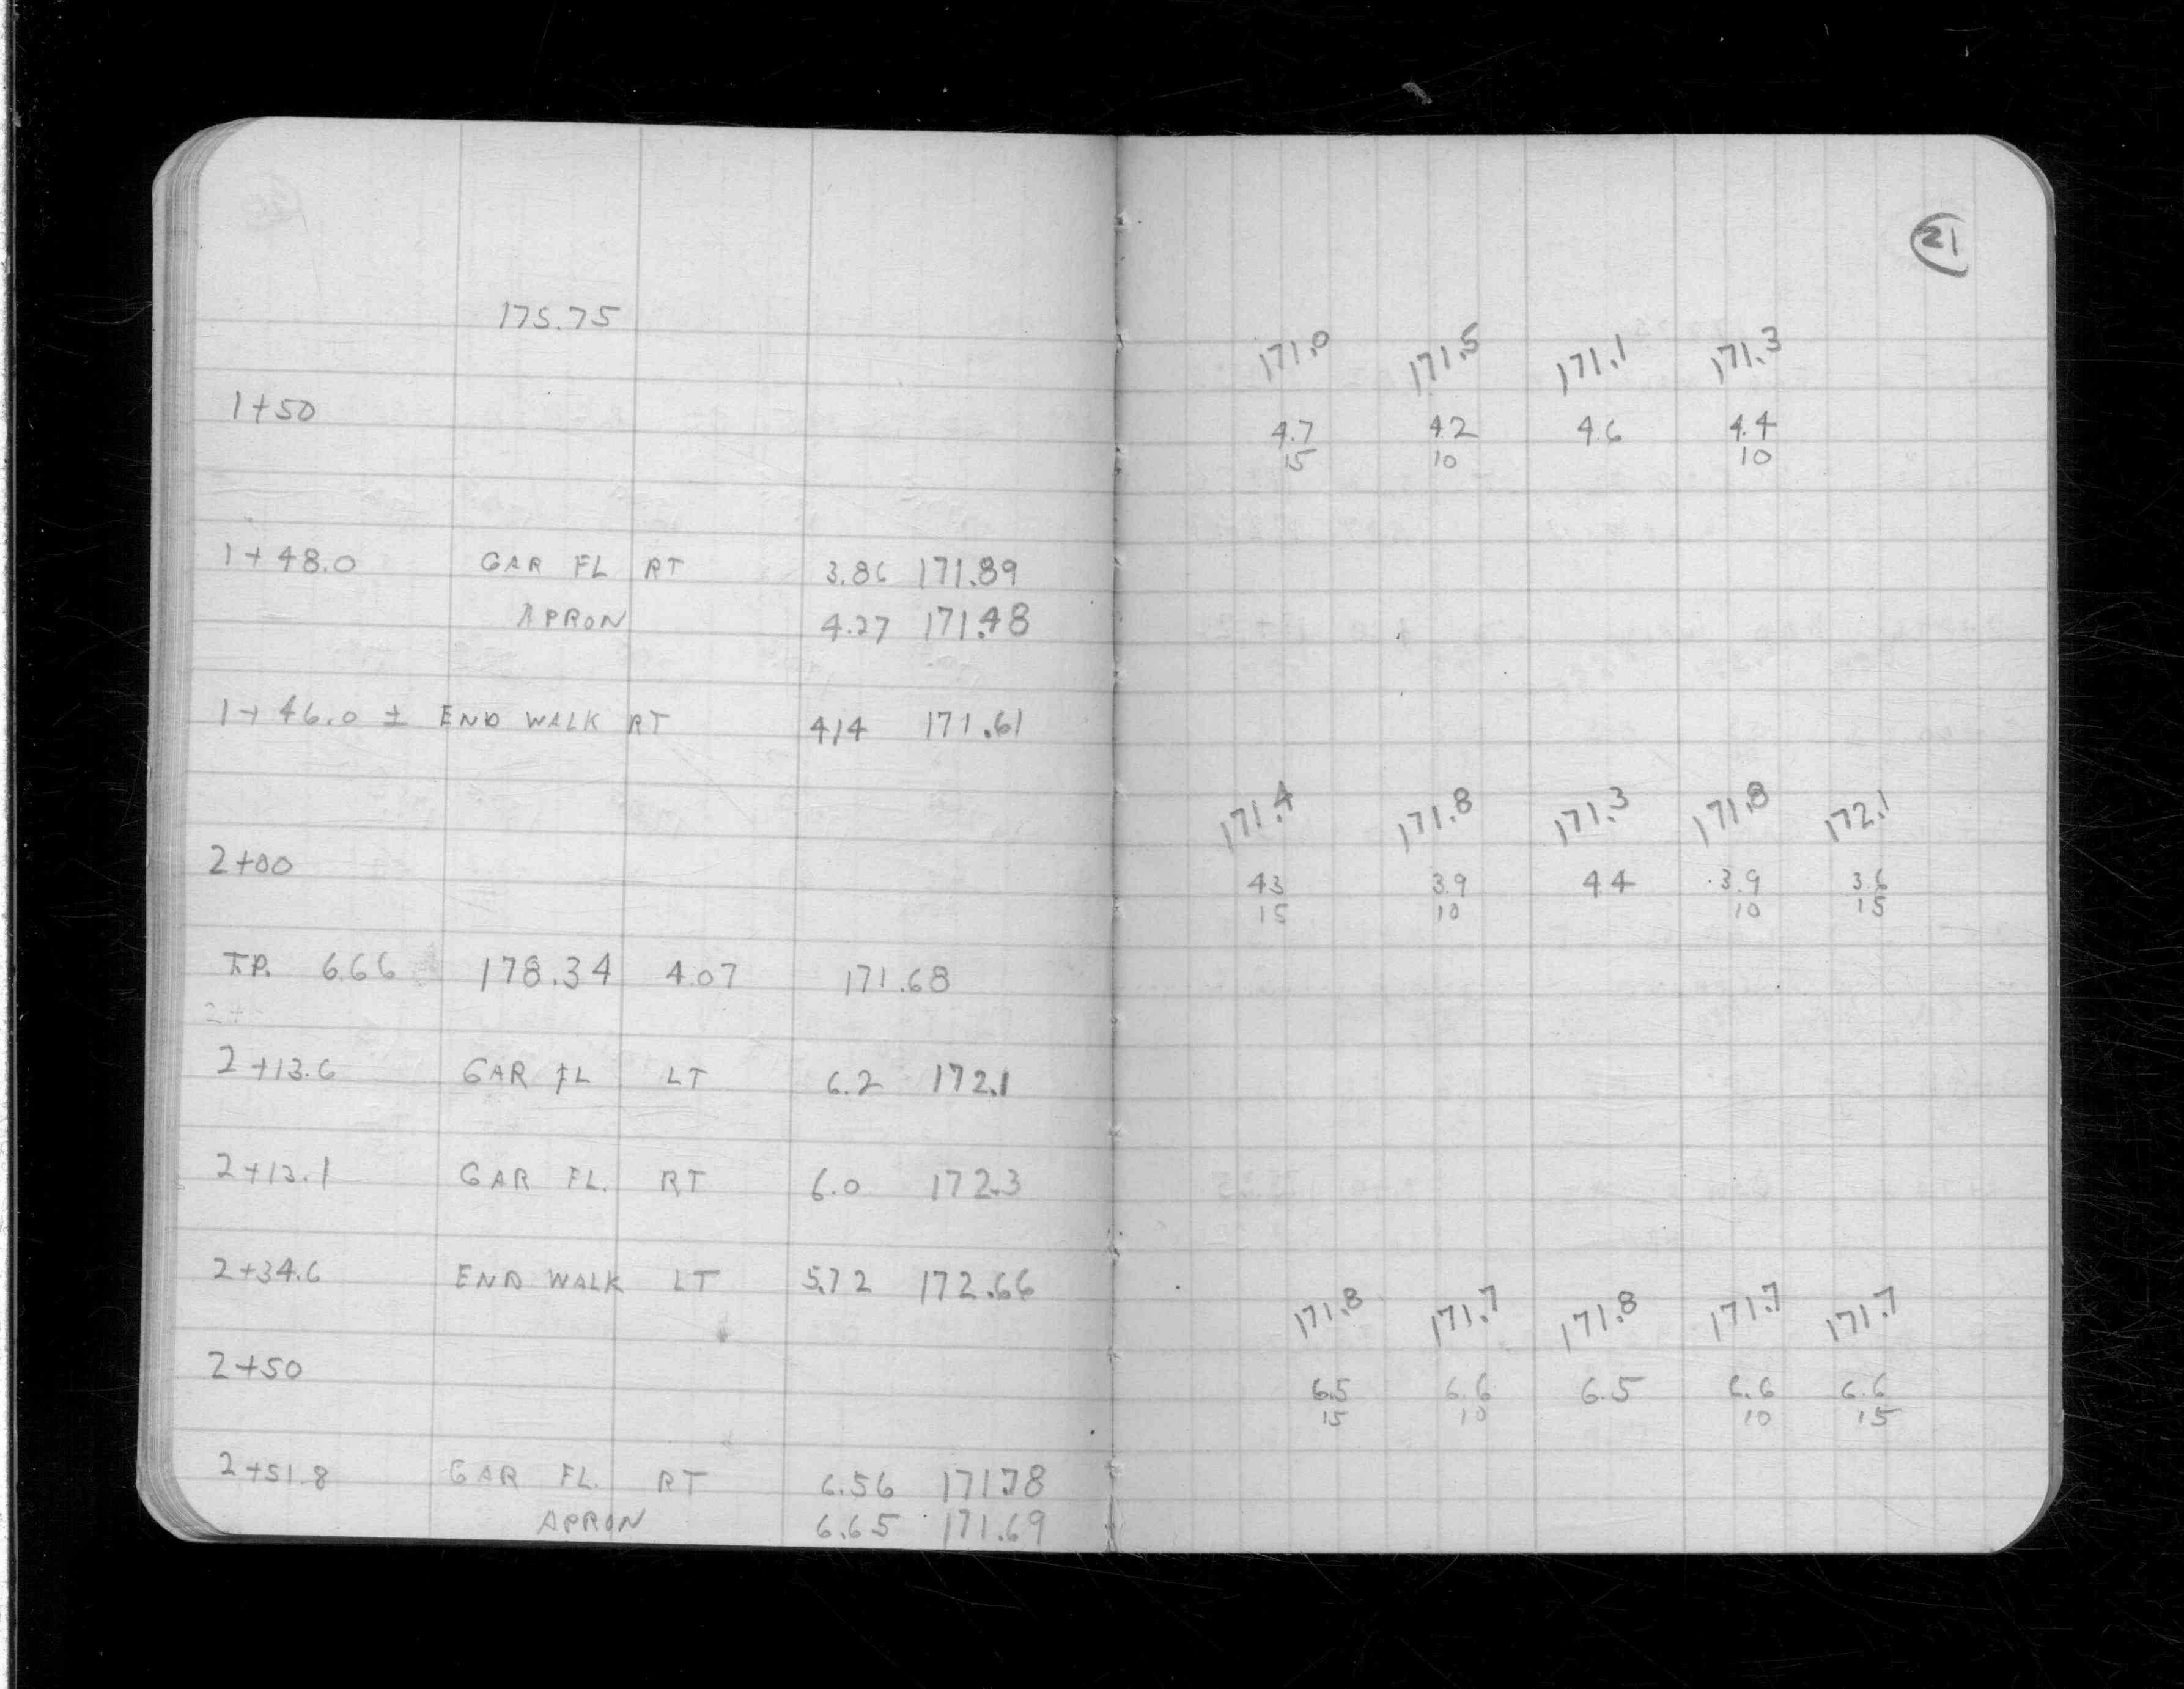 21
175.75
171.0 171.5 171.1 171.3
1+50 4.7 4.2 4.6 4.4
15 10 10
1+48.0 GAR FL RT 3.86 171.89
APRON 4.27 171.48
1+46.0 ± END WALK RT 4.14 171.61
171.4 171.8 171.3 171.8 172.1
2+00 4.3 3.9 4.4 3.9 3.6
15 10 10 15
T.P. 6.66 178.34 4.07 171.68
2+
2+13.6 GAR FL LT 6.2 172.1
2+13.1 GAR FL. RT 6.0 172.3
2+34.6 END WALK LT 5.72 172.66
171.8 171.7 171.8 171.7 171.7
2+50 6.5 6.6 6.5 6.6 6.6
15 10 10 15
2+51.8 GAR FL. RT 6.56 171.78
APRON 6.65 171.69